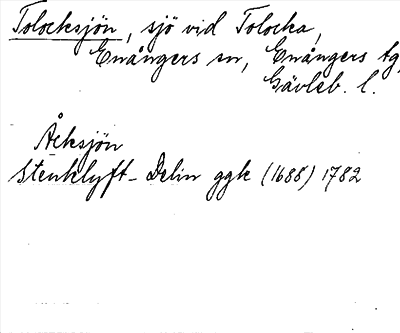 Tolocksjön, sjö vid Tolocka,
Enångers sn, Enångers tg,
Gävleb. l.
Åcksjön
Stenklyft - Delin ggk (1688) 1782